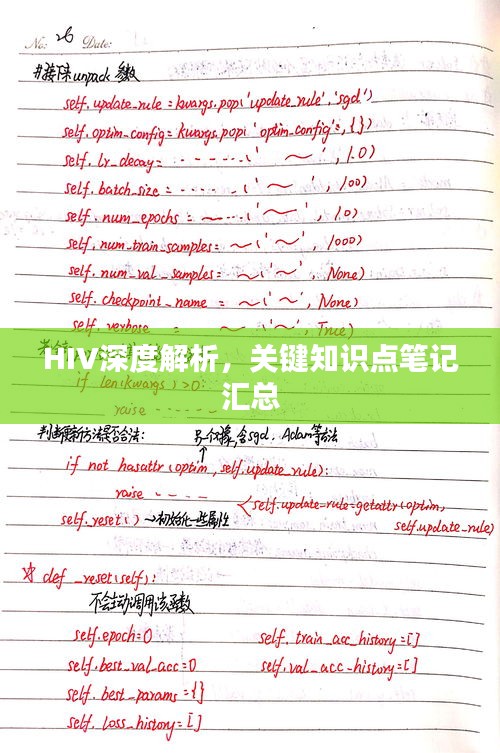 No: 26 Date:
#接下来unpack 参数
self.update_rule = kwargs.pop('update_rule','sgd')
self.optim_config = kwargs.pop('optim_config', {})
self.lr_decay = ------('～', 1.0)
self.batch_size = ------('～', 100)
self.num_epochs = ～----('～', 10)
self.num_train_samples = ～('～', 1000)
self.num_val_samples = ～('～', None)
self.checkpoint_name = ～('～', None)
self.verbose = ～('～', True)
HIV深度解析，关键知识点笔记
汇总
if len(kwargs)>0:
raise ----
判断更新方法是否合法: 另一个档,含sgd, Adam等方法
if not hasattr(optim, self.update_rule):
raise ----
self.update_rule=getattr(optim,
self._reset() →初始化一些属性 self.update_rule)
☆ def _reset(self):
不会主动调用该函数
self.epoch=0 self.train_acc_history=[]
self.best_val_acc=0 self.val_acc_history=[]
self.best_params={}
self.loss_history=[]